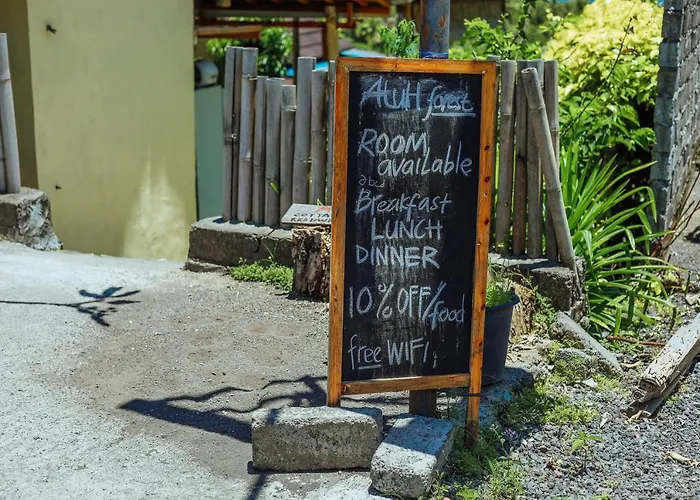 AtuH forest
ROOM
available
abd
Breakfast
LUNCH
DINNER
10% OFF/food
free WIFI
COTTA
RESTAW